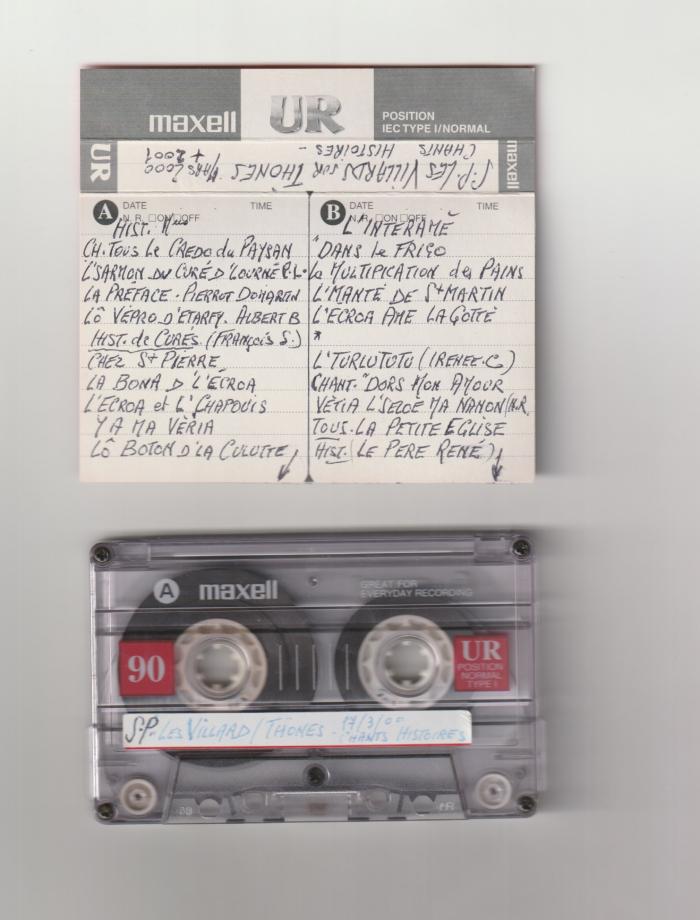 maxell UR POSITION
IEC TYPE I/NORMAL
UR
S.P. LES VILLARDS SUR THÔNES MARS 2000
CHANTS HISTOIRES - + 2001
maxell
A DATE TIME
N.R. □ON □OFF
HIST.
CH. TOUS LE CREDO du PAYSAN
L'SARMON DU CURÉ D'LOURNÉ P.L.
LA PRÉFACE - PIERROT DOMARTIN
LÔ VÉPRO D'ETAREY. ALBERT B
HIST. de CURÉS (FRANÇOIS S.)
CHEZ St PIERRE
LA BONA D L'ECROA
L'ECROA et L'CHAPOUIS
Y A MA VÉRIA
LÔ BOTON D'LA CULOTTE
B DATE TIME
N.R. □ON □OFF
L'INTERAMÈ
"DANS le FRIGO
La MULTIPICATION des PAINS
L'MANTÉ DE St MARTIN
L'ECROA AME LA GOTTE
*
L'TURLUTUTU (IRENEE.C)
CHANT "DORS MON AMOUR
VÈTIA L'SELOE MA NANON (N.R.
TOUS. LA PETITE EGLISE
HIST. (LE PERE RENÉ)
A maxell GREAT FOR
EVERYDAY RECORDING
90
UR
POSITION
NORMAL
TYPE I
S.P. LES VILLARD/THONES - 17/3/00
CHANTS HISTOIRES